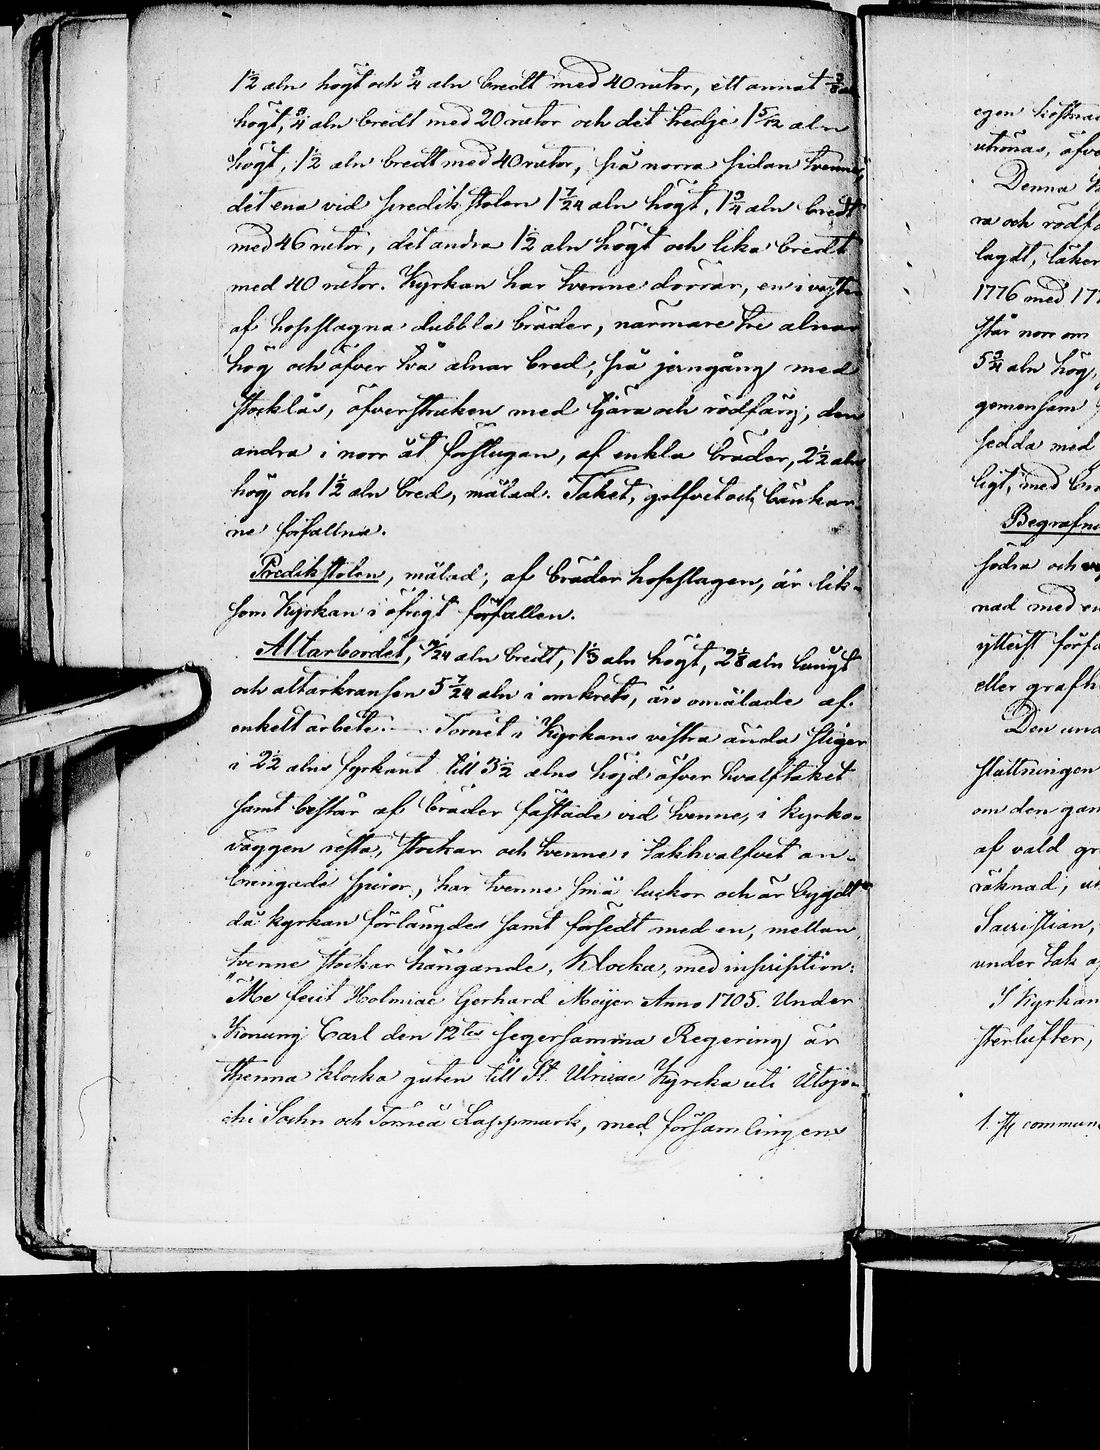 1½ aln högt och ¾ aln bredt med 40 rutor, ett annat
högt, ¾ aln bredt med 20 rutor och det tredje 1 5/12 aln
högt, 1½ aln bredt med 40 rutor, på norra sidan tvenne,
det ena vid predikstolen 1 7/24 aln högt, 1¾ aln bredt
med 46 rutor, det andra 1½ aln högt och lika bredt
med 40 rutor. Kyrkan har tvenne dörrar, en i vester
af hopslagna dubbla bräder, närmare tre alnar
hög och öfver två alnar bred, på jerngång med
stocklås, öfverstruken med tjära och rödfärg, den
andra i norr åt förstugan, af enkla bräder, 2½ aln
hög och 1½ aln bred, målad. Taket, golfvet och bänkar-
ne förfallna.
Predikstolen, målad, af bräder hopslagen, är lik-
som Kyrkan i öfrigt förfallen.
Altarbordet, /24 aln bredt, 1⅓ aln högt, 2⅛ aln långt
och altarkransen 5 7/24 aln i omkrets, äro omålade af
enkelt arbete. — Tornet i Kyrkans vestra ända stiger
i 2½ alns fyrkant till 3½ alns höjd öfver hvalftaket
samt består af bräder fästade vid tvenne, i kyrko-
väggen resta, stockar och tvenne i takhvalfvet an-
bringade sparrar, har tvenne små luckor och är bygdt
då kyrkan förlängdes samt försedt med en, mellan
tvenne stockar hängande, klocka, med inskription:
"Me fecit Holmiae Gerhard Meyer Anno 1705. Under
Konung Carl den 12tes segersamma Regering är
thenna klocka guten till St. Ulricae Kyrcka uti Utsjo-
chi Sochn och Torneå Lappmark, med församlingens
egen kostnad
utrönas, öfve
Denna
ra och rödfä
lagdt, läker
1776 med 177
står norr om
5¾ aln hög,
gemensam
sedda med
ligt, med
Begrafn
södra och
nad med en
ytterst förfa
eller grafh
Den und
slättningen
om den gam
af vald gr
räknad, u
Sacristian,
under tak a
I Kyrkan
sterlufter,
1. St commun